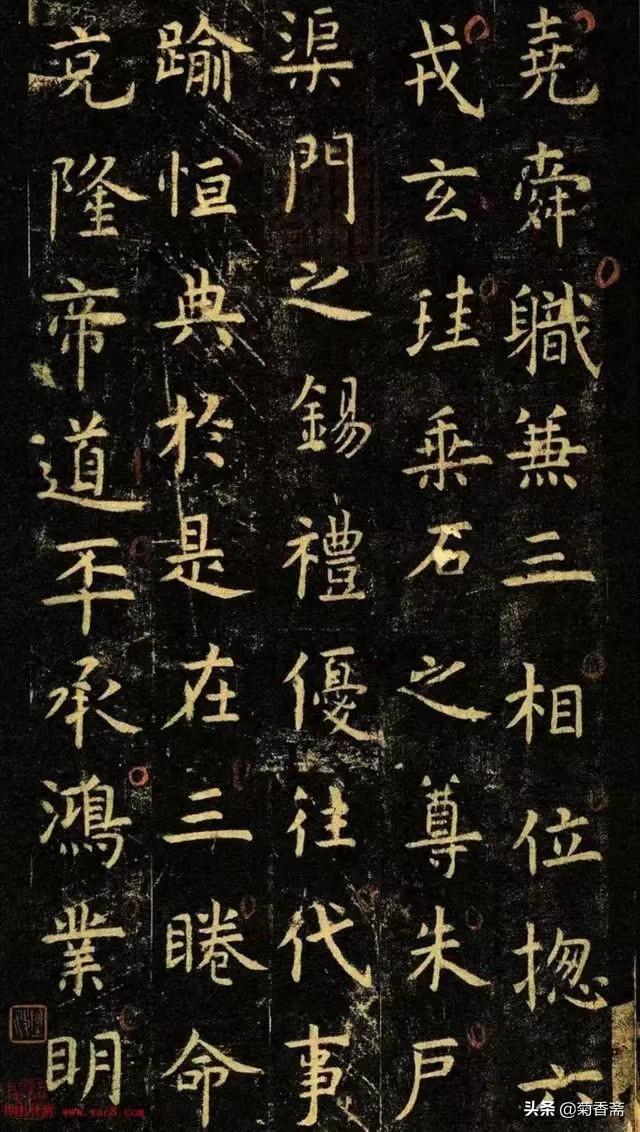 堯舜職兼三相位揔六
戎玄珪乘石之尊朱戶
渠門之錫禮優往代事
踰恒典於是在三睠命
克隆帝道丕承鴻業明
頭条 @菊香斋